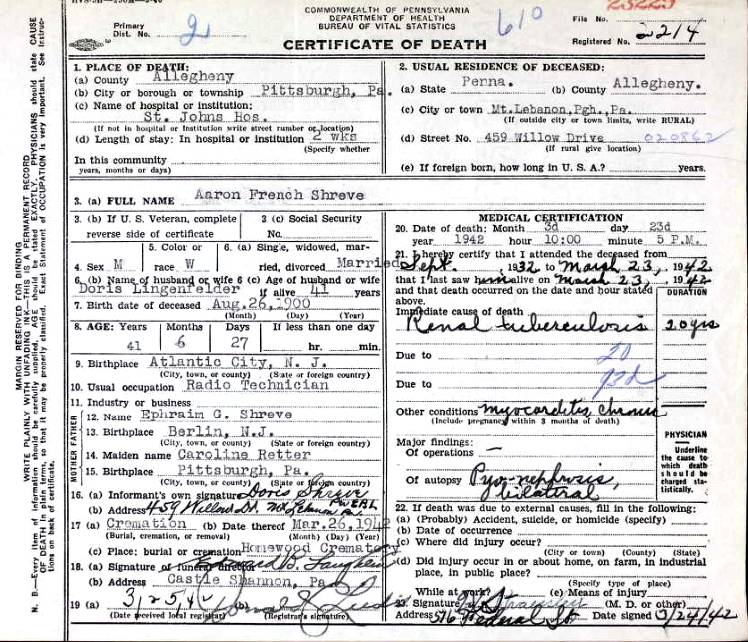 COMMONWEALTH OF PENNSYLVANIA
DEPARTMENT OF HEALTH
BUREAU OF VITAL STATISTICS
Primary
Dist. No. 2
610
File No.
Registered No. 2214
CERTIFICATE OF DEATH
N. B.—Every item of information should be carefully supplied. AGE should be stated EXACTLY. PHYSICIANS should state CAUSE
OF DEATH in plain terms, so that it may be properly classified. Exact Statement of OCCUPATION is very important. See Instruc-
tions on back of certificate.
WRITE PLAINLY WITH UNFADING INK—THIS IS A PERMANENT RECORD
MARGIN RESERVED FOR BINDING
1. PLACE OF DEATH:
(a) County Allegheny
(b) City or borough or township Pittsburgh, Pa.
(c) Name of hospital or institution:
St. Johns Hos.
(If not in hospital or Institution write street number or location)
(d) Length of stay: In hospital or institution? 2 wks
(Specify whether
In this community
years, months or days)
2. USUAL RESIDENCE OF DECEASED:
(a) State Penna. (b) County Allegheny.
(c) City or town Mt.Lebanon,Pgh.,Pa.
(If outside city or town limits, write RURAL)
(d) Street No. 459 Willow Drive 020862
(If rural give location)
(e) If foreign born, how long in U. S. A.? years.
3. (a) FULL NAME Aaron French Shreve
3. (b) If U. S. Veteran, complete
reverse side of certificate
3 (c) Social Security
No.
4. Sex M
5. Color or
race W
6. (a) Single, widowed, mar-
ried, divorced Married
6. (b) Name of husband or wife
Doris Lingenfelder
6 (c) Age of husband or wife
if alive 41 years
7. Birth date of deceased Aug.26,1900
(Month) (Day) (Year)
8. AGE: Years Months Days If less than one day
41 6 27 hr. min.
9. Birthplace Atlantic City, N. J.
(City, town, or county) (State or foreign country)
10. Usual occupation Radio Technician
11. Industry or business
FATHER
12. Name Ephraim G. Shreve
13. Birthplace Berlin, N.J.
(City, town, or county) (State or foreign country)
MOTHER
14. Maiden name Caroline Retter
15. Birthplace Pittsburgh, Pa.
(City, town, or county) (State or foreign country)
16. (a) Informant's own signature Doris Shreve
(b) Address 459 Willow Dr. Mt Lebanon Pa.
17 (a) Cremation (b) Date thereof Mar.26,1942
(Burial, cremation, or removal) (Month) (Day) (Year)
(c) Place: burial or cremation Homewood Crematory
18. (a) Signature of funeral director
(b) Address Castle Shannon, Pa
19 (a) 3/25/42 (b)
(Date received local registrar) (Registrar's signature)
MEDICAL CERTIFICATION
20. Date of death: Month 3d day 23d
year 1942 hour 10:00 minute 5 P.M.
21. I hereby certify that I attended the deceased from
Sept. 1932 to March 23, 1942
that I last saw him alive on March 23, 1942
and that death occurred on the date and hour stated
above.
DURATION
Immediate cause of death
Renal tuberculosis 20 yrs
Due to 20
Due to
Other conditions myocarditis chronic
(Include pregnancy within 3 months of death)
PHYSICIAN
Underline
the cause to
which death
should be
charged sta-
tistically.
Major findings:
Of operations —
Of autopsy Pyo-nephrosis,
bilateral
22. If death was due to external causes, fill in the following:
(a) (Probably) Accident, suicide, or homicide (specify)
(b) Date of occurrence
(c) Where did injury occur?
(City or town) (County) (State)
(d) Did injury occur in or about home, on farm, in industrial
place, in public place?
(Specify type of place)
While at work? (e) Means of injury
23. Signature (M. D. or other)
Address Date signed 3/24/42